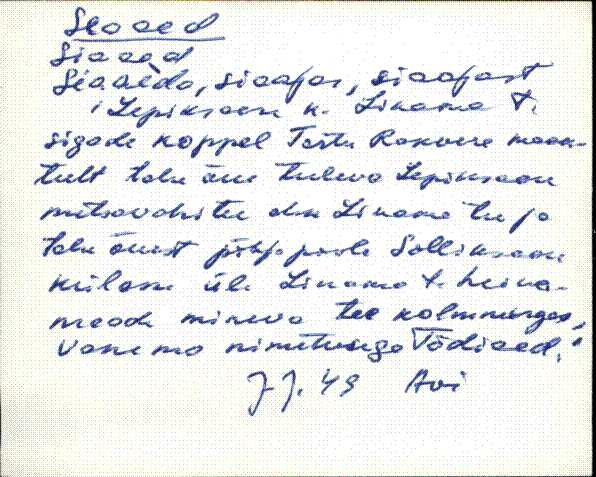 Seaaed
Siaaed
Siaaeda, siaafas, siaafast
Lepiksaare k. Linama t.
sigade koppel Tartu Rakvere maan-
teelt talu õue tuleva Lepiksaare
metsavahi tee elu Linama tee ja
talu õuest põhja poole Solliksaare
külasse üle Linama t. heina-
maade mineva tee kolmnurgas,
vanema nimetusega Tõdiaed."
J J. '49 Avi